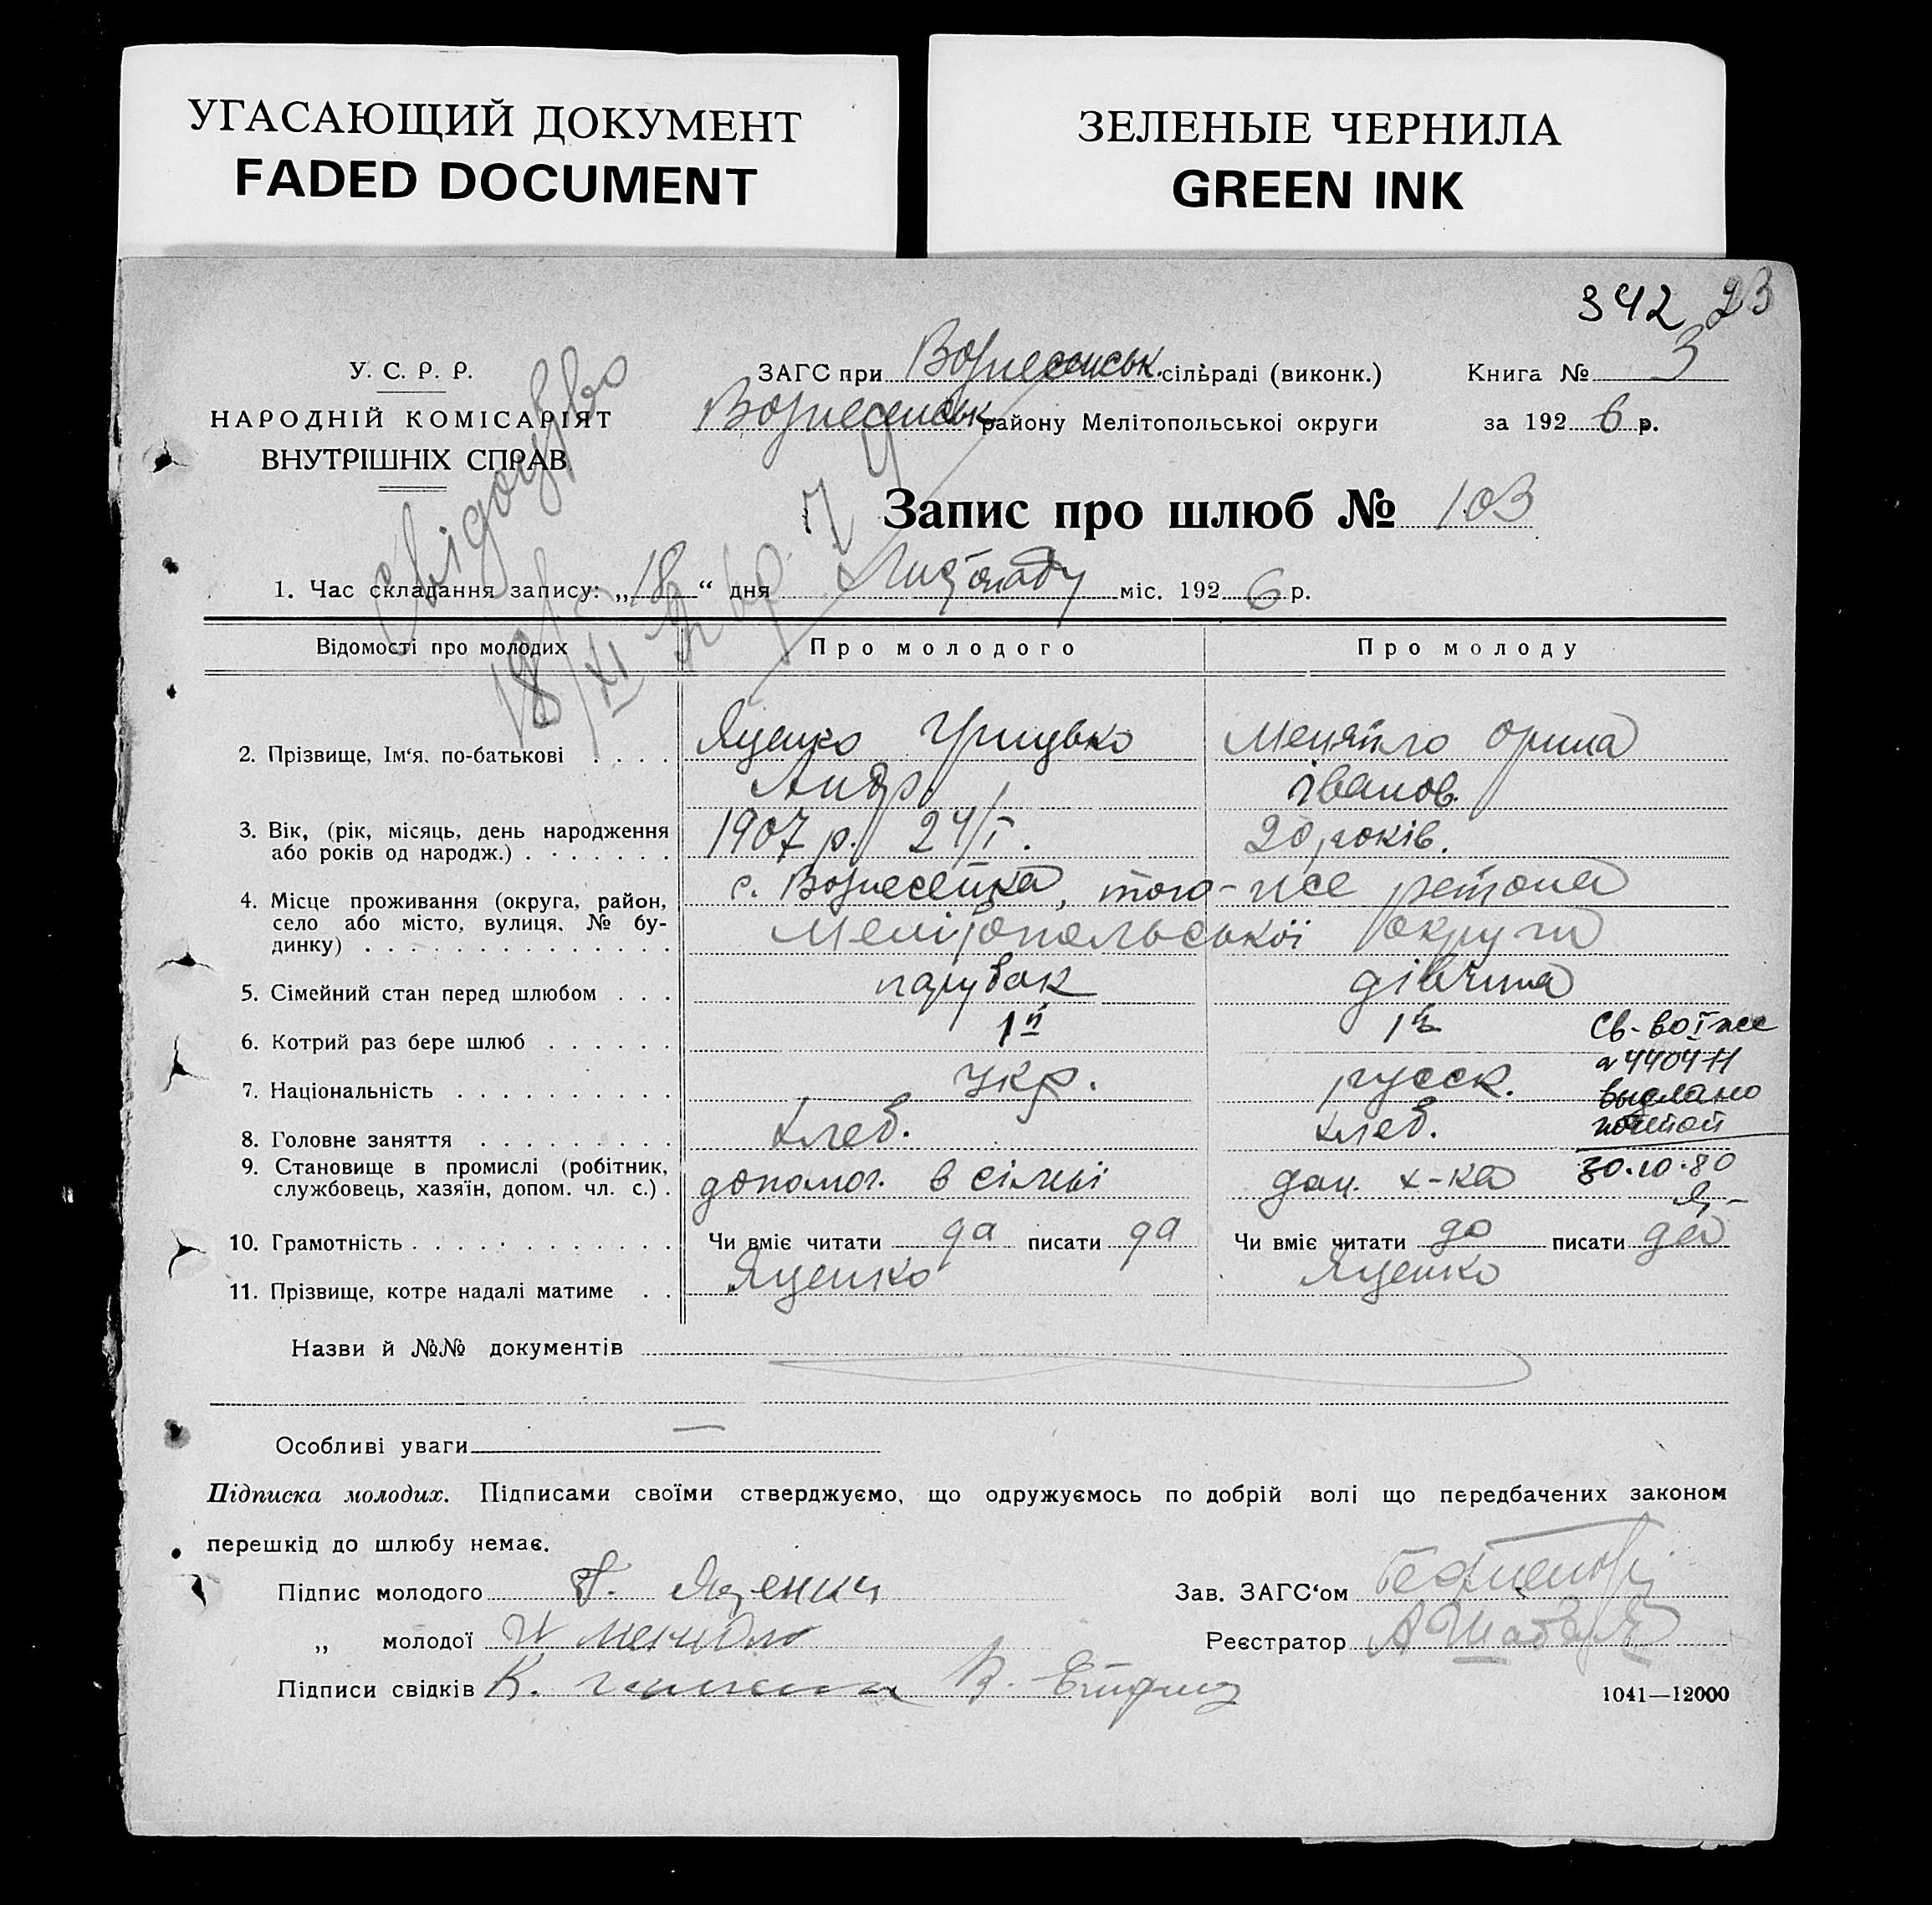 УГАСАЮЩИЙ ДОКУМЕНТ
FADED DOCUMENT
ЗЕЛЕНЫЕ ЧЕРНИЛА
GREEN INK
342 23
У. С. Р. Р.
НАРОДНІЙ КОМІСАРІЯТ
ВНУТРІШНІХ СПРАВ
ЗАГС при Вознесенськ. сільраді (виконк.)
Вознесенськ району Мелітопольської округи
Книга № 3
за 192 6 р.
Запис про шлюб № 103
1. Час складання запису: „18“ дня Листопаду міс. 192 6 р.
18/XI
Відомості про молодих
Про молодого
Про молоду
2. Прізвище, Ім‘я, по-батькові . . . .
Яценко Грицько
Андр.
Меняйло Орина
Іванов.
3. Вік, (рік, місяць, день народження
або років од народж.) . . . . . . .
1907 р. 24/I.
20 років.
4. Місце проживання (округа, район,
село або місто, вулиця, № бу-
динку) . . . . . . . . . . . . . .
с. Вознесенка, того-же района
Мелітопольської округи
5. Сімейний стан перед шлюбом . . .
парубок
дівчина
6. Котрий раз бере шлюб . . . . . .
1й
7. Національність . . . . . . . . . .
укр.
русск.
8. Головне заняття . . . . . . . . .
хлеб.
хлеб.
9. Становище в промислі (робітник,
службовець, хазяїн, допом. чл. с.) .
допомог. в сімьї
дом. х-ка
выслано
почтой
30.10.80
10. Грамотність . . . . . . . . . . . .
Чи вміє читати да писати да
Чи вміє читати да писати да
11. Прізвище, котре надалі матиме . .
Яценко
Яценко
Назви й №№ документів
Особливі уваги —
Підписка молодих. Підписами своїми стверджуємо, що одружуємось по добрій волі що передбачених законом
перешкід до шлюбу немає.
Підпис молодого Г.
„ молодої
Підписи свідків К.
Зав. ЗАГС‘ом
Реєстратор
1041—12000